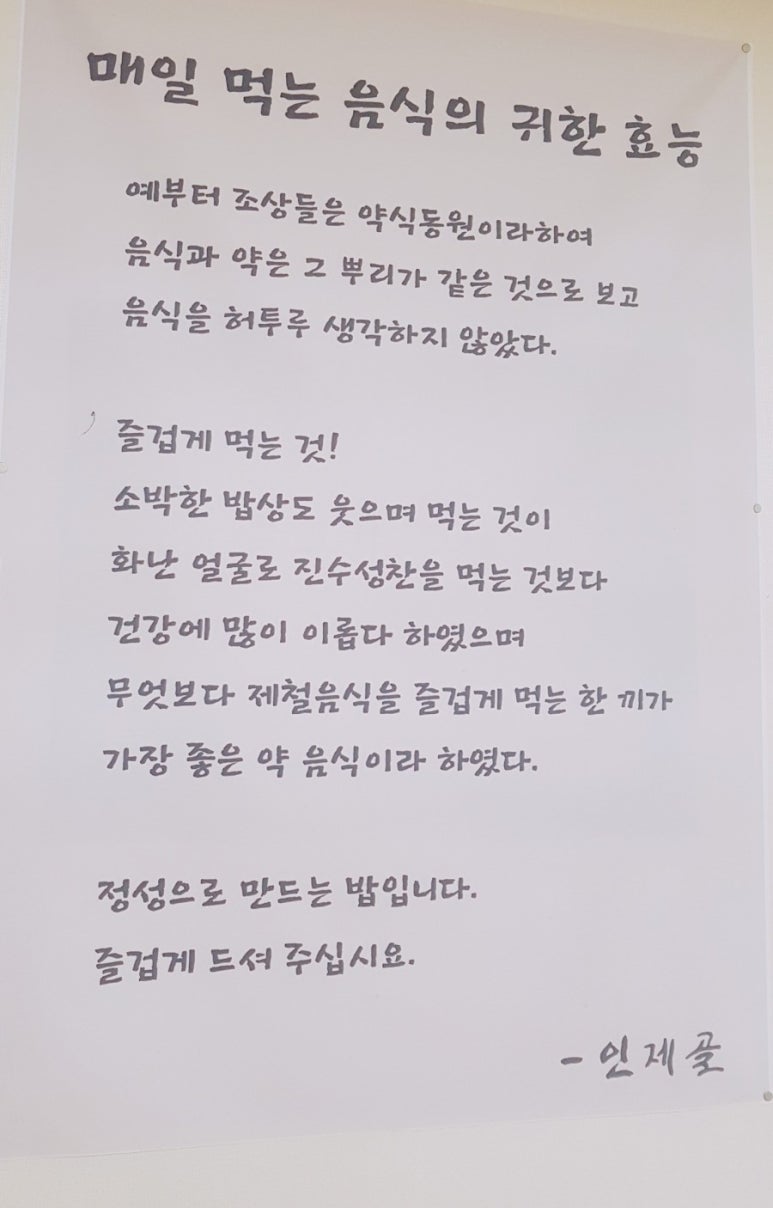 매일 먹는 음식의 귀한 효능
예부터 조상들은 약식동원이라하여
음식과 약은 그 뿌리가 같은 것으로 보고
음식을 허투루 생각하지 않았다.
즐겁게 먹는 것!
소박한 밥상도 웃으며 먹는 것이
화난 얼굴로 진수성찬을 먹는 것보다
건강에 많이 이롭다 하였으며
무엇보다 제철음식을 즐겁게 먹는 한 끼가
가장 좋은 약 음식이라 하였다.
정성으로 만드는 밥입니다.
즐겁게 드셔 주십시요.
- 인제골